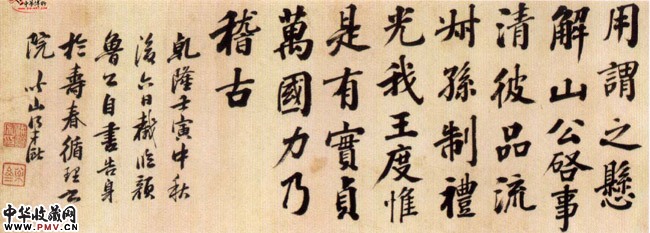 用謂之懸
解山公啓事
清彼品流
州孫制禮
光我王度惟
是有實貞
萬國力乃
稽古
乾隆壬寅中秋
後六日戲臨顏
魯公自書告身
於壽春循理書
院
中华收藏网
WWW.PMV.CN
中华收藏网
www.PMV.CN